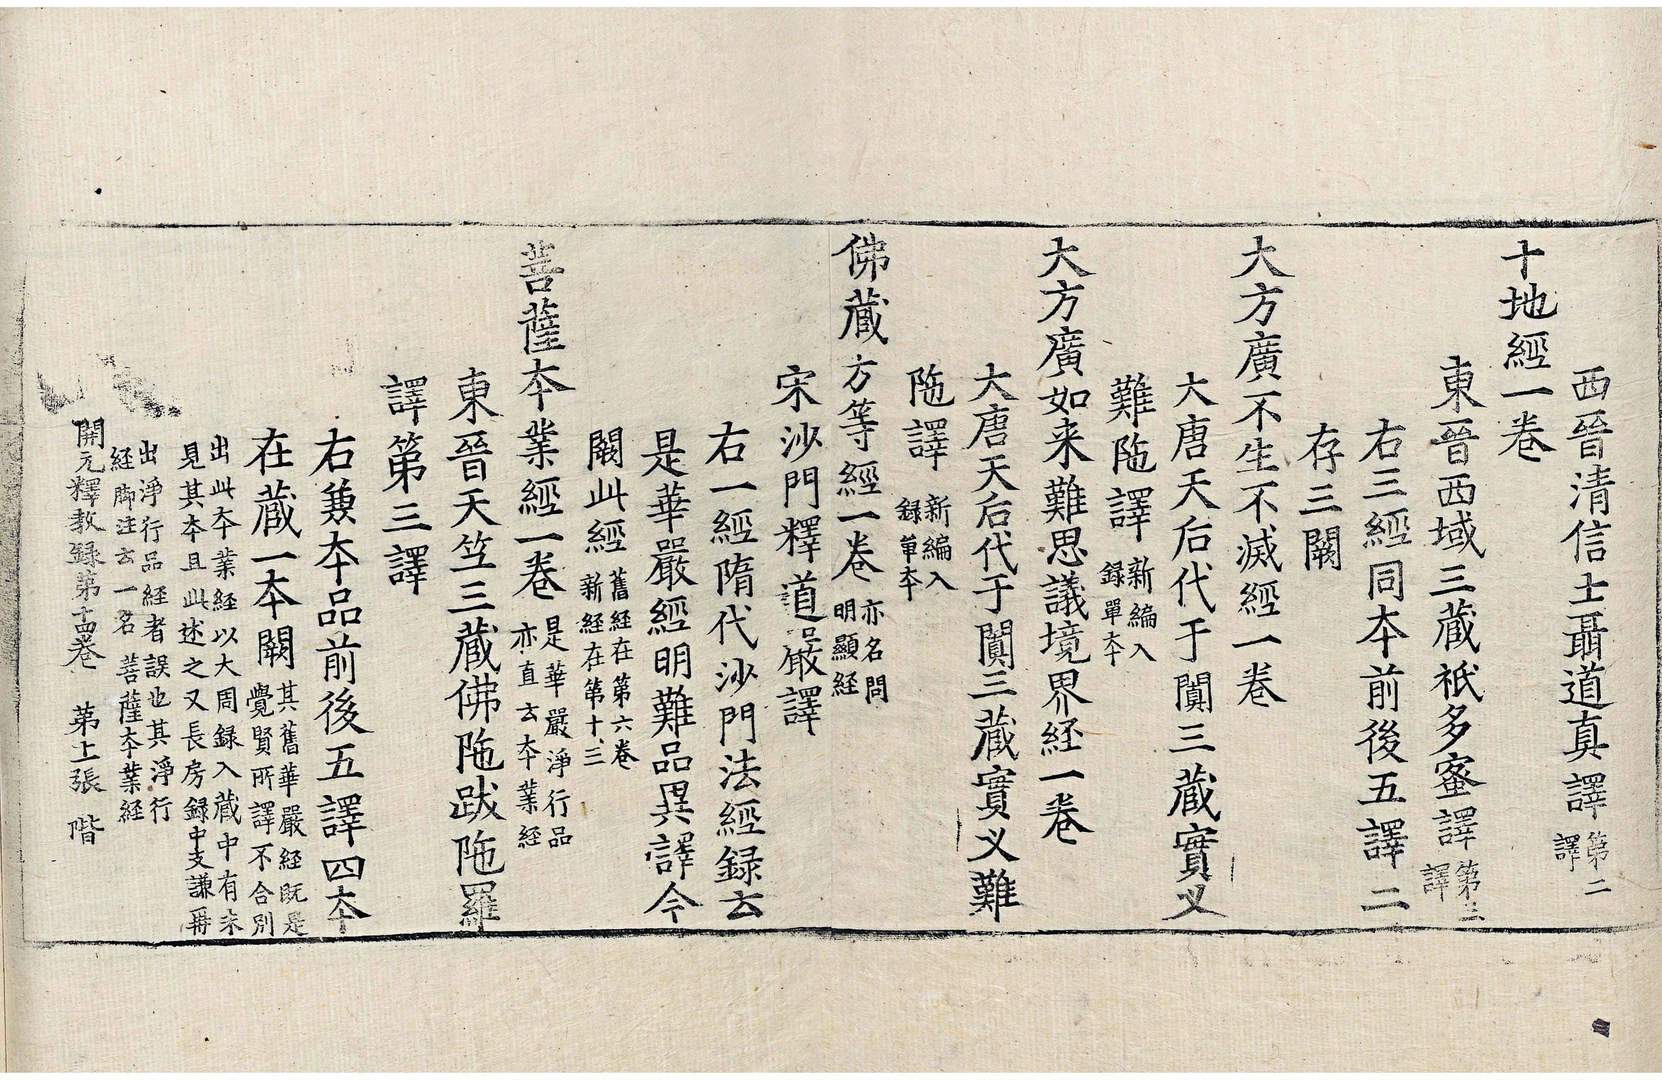 西晉清信士聶道真譯第二譯
十地經一卷
東晉西域三藏祇多蜜譯第三譯
右三經同本前後五譯二
存三闕
大方廣不生不滅經一卷
大唐天后代于闐三藏實叉
難陁譯新編入録單本
大方廣如来難思議境界経一卷
大唐天后代于闐三藏實叉難
陁譯新編入録單本
佛藏方等經一卷亦名問明顯経
宋沙門釋道嚴譯
右一經隋代沙門法經録云
是華嚴經明難品異譯今
闕此經舊經在第六卷新經在第十三
菩薩本業經一卷是華嚴淨行品亦直云本業経
東晉天竺三藏佛陁跋陁羅
譯第三譯
右兼本品前後五譯四本
在藏一本闕其舊華嚴経既是覺賢所譯不合別
出此本業経以大周録入藏中有未見其本且此述之又長房録中支謙再
出淨行品経者誤也其淨行経脚注云一名菩薩本業経
開元釋教録第十四卷 第上張 階